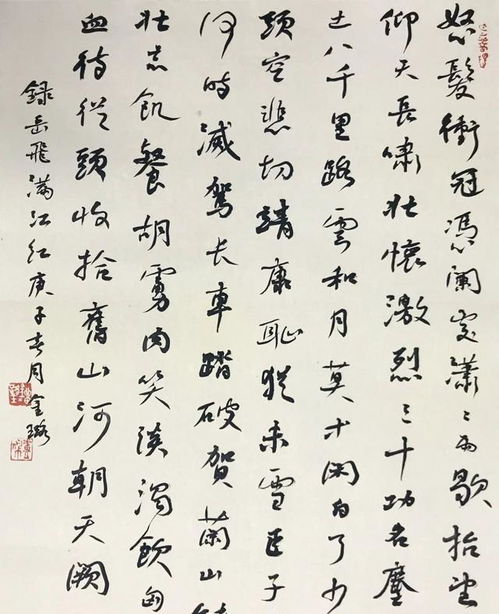 怒髮衝冠憑闌處瀟〻雨歇抬望
仰天長嘯壯懷激烈三十功名塵
土八千里路雲和月莫等閑白了少
頭空悲切靖康恥猶未雪臣子
何時滅駕長車踏破賀蘭山缺
壯志飢餐胡虜肉笑談渴飲匈
血待從頭收拾舊山河朝天闕
錄岳飛滿江紅庚子春月金璐